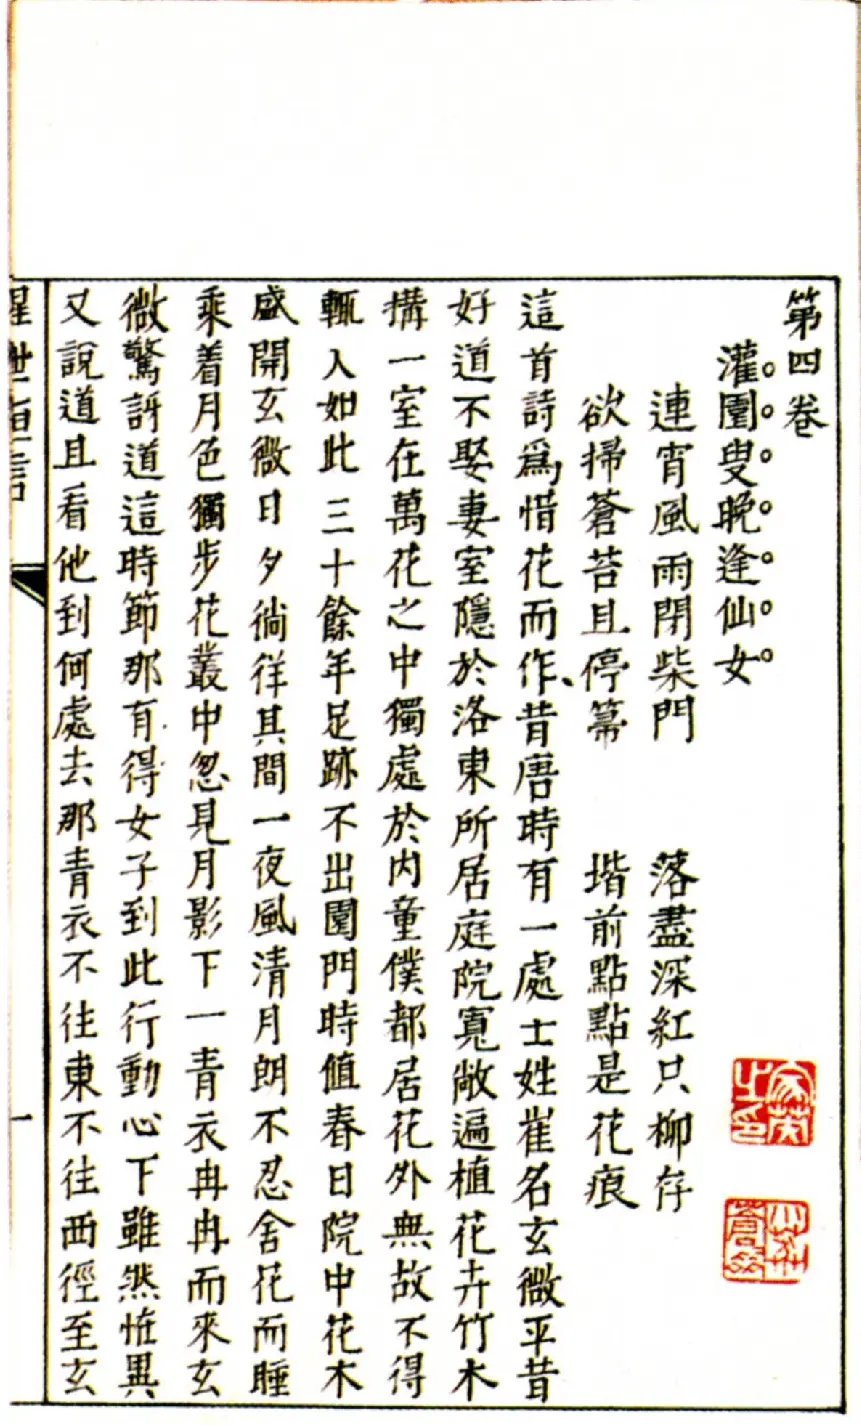 第四卷
灌園叟晚逢仙女
連宵風雨閉柴門　落盡深紅只柳存
欲掃蒼苔且停箒　堦前點點是花痕
這首詩爲惜花而作、昔唐時有一處士姓崔名玄微平昔
好道不娶妻室隱於洛東所居庭院寬敞遍植花卉竹木
搆一室在萬花之中獨處於內童僕都居花外無故不得
輒入如此三十餘年足跡不出園門時值春日院中花木
盛開玄微日夕徜徉其間一夜風清月朗不忍舍花而睡
乘着月色獨步花叢中忽見月影下一青衣冉冉而來玄
微驚訝道這時節那有得女子到此行動心下雖然怪異
又說道且看他到何處去那青衣不往東不往西徑至玄
醒世恒言
一